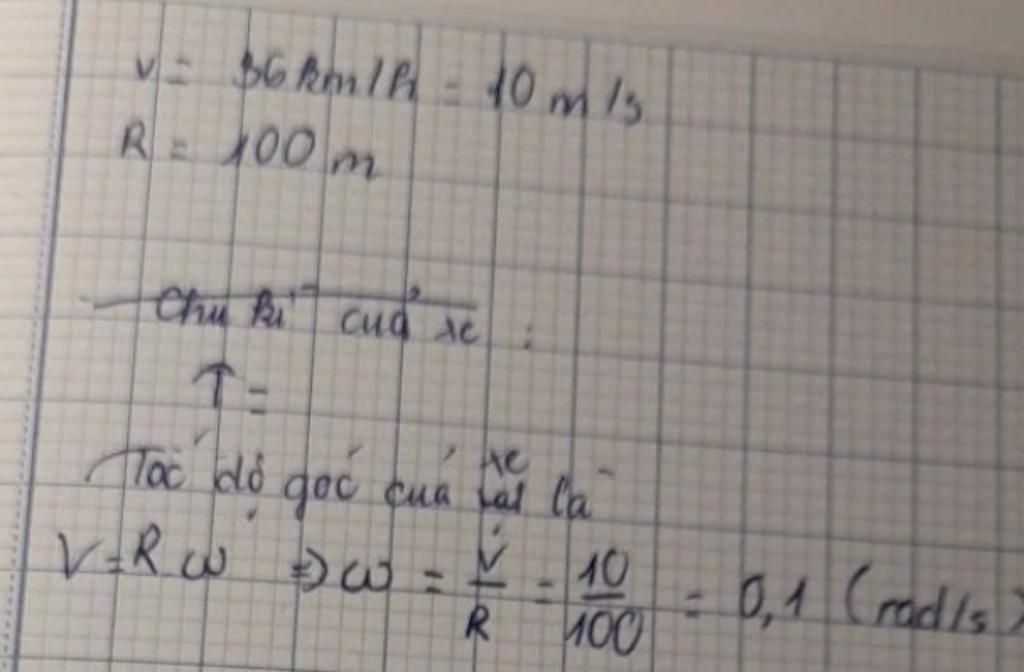 v = 36 km/h = 10 m/s
R = 100 m
Chu kì của xe :
T =
Tốc độ góc của xe là
V = R ω ⇒ ω = v/R = 10/100 = 0,1 (rad/s)